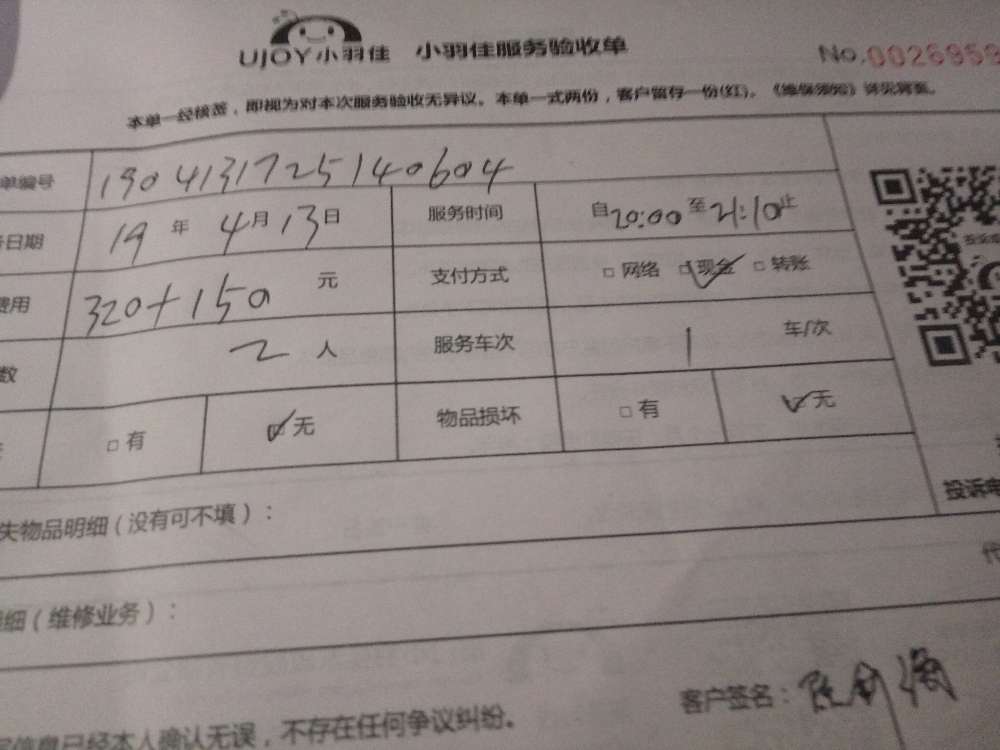 UJOY小羽佳 小羽佳服务验收单 No.0026959
本单一经核签，即视为对本次服务验收无异议。本单一式两份，客户留存一份(红)。《维修须知》详见背面。
单编号 1904131725140604
日期 19 年 4 月 13 日 服务时间 自20:00至21:10止
费用 320+150 元 支付方式 □网络 ☑现金 □转账
数 2 人 服务车次 1 车/次
□有 ☑无 物品损坏 □有 ☑无
投诉电
失物品明细（没有可不填）：
代
细（维修业务）：
客户签名：
信息已经本人确认无误，不存在任何争议纠纷。